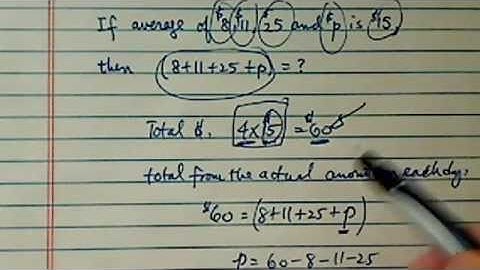 If average of $8, $11, $25 and $p is $15,
then (8+11+25+p) = ?
Total $. 4×15 = $60
total from the actual each
$60 = (8+11+25+p)
p = 60-8-11-25